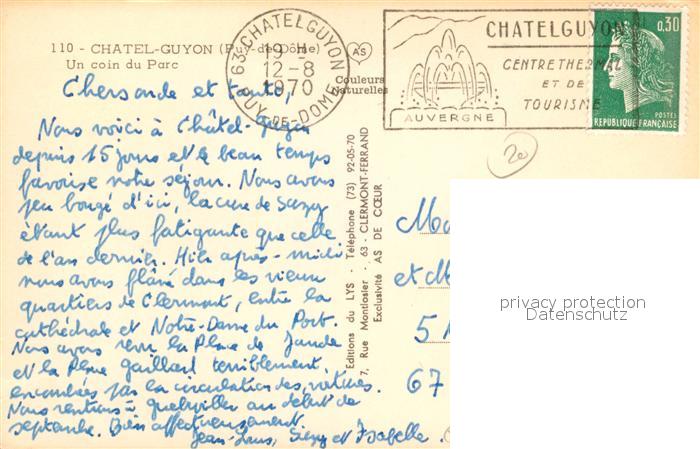 110 - CHATEL-GUYON (Puy-de-Dôme)
Un coin du Parc
63 CHATELGUYON
9 - H
12 - 8
1970
PUY-DE-DOME
AS
Couleurs
Naturelles
CHATELGUYON
CENTRE THERMAL
ET DE
TOURISME
AUVERGNE
0,30
POSTES
REPUBLIQUE FRANÇAISE
20
Chers oncle et tante,
Nous voici à Châtel-Guyon
depuis 15 jours et le beau temps
favorise notre séjour. Nous avons
peu bougé d'ici, la cure de Suzy
étant plus fatigante que celle
de l'an dernier. Hier après-midi
nous avons flâné dans les vieux
quartiers de Clermont, entre la
cathédrale et Notre-Dame du Port.
Nous avons revu la Place de Jaude
et la Place Gaillard terriblement
encombrées par la circulation des voitures.
Nous rentrons à au début de
septembre. Bien affectueusement.
Jean-Louis, Suzy et Isabelle.
Editions du LYS - Téléphone (73) 92-05-70
7, Rue Montlosier - 63 - CLERMONT-FERRAND
Exclusivité AS DE CŒUR
et M
5
67
privacy protection
Datenschutz